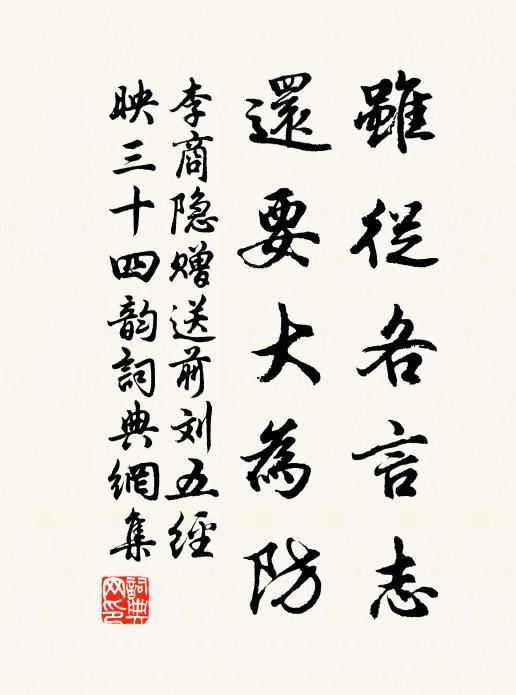 雖從各言志
還要大為防
李商隐赠送前刘五經
映三十四韵詞典網集
詞典
网印